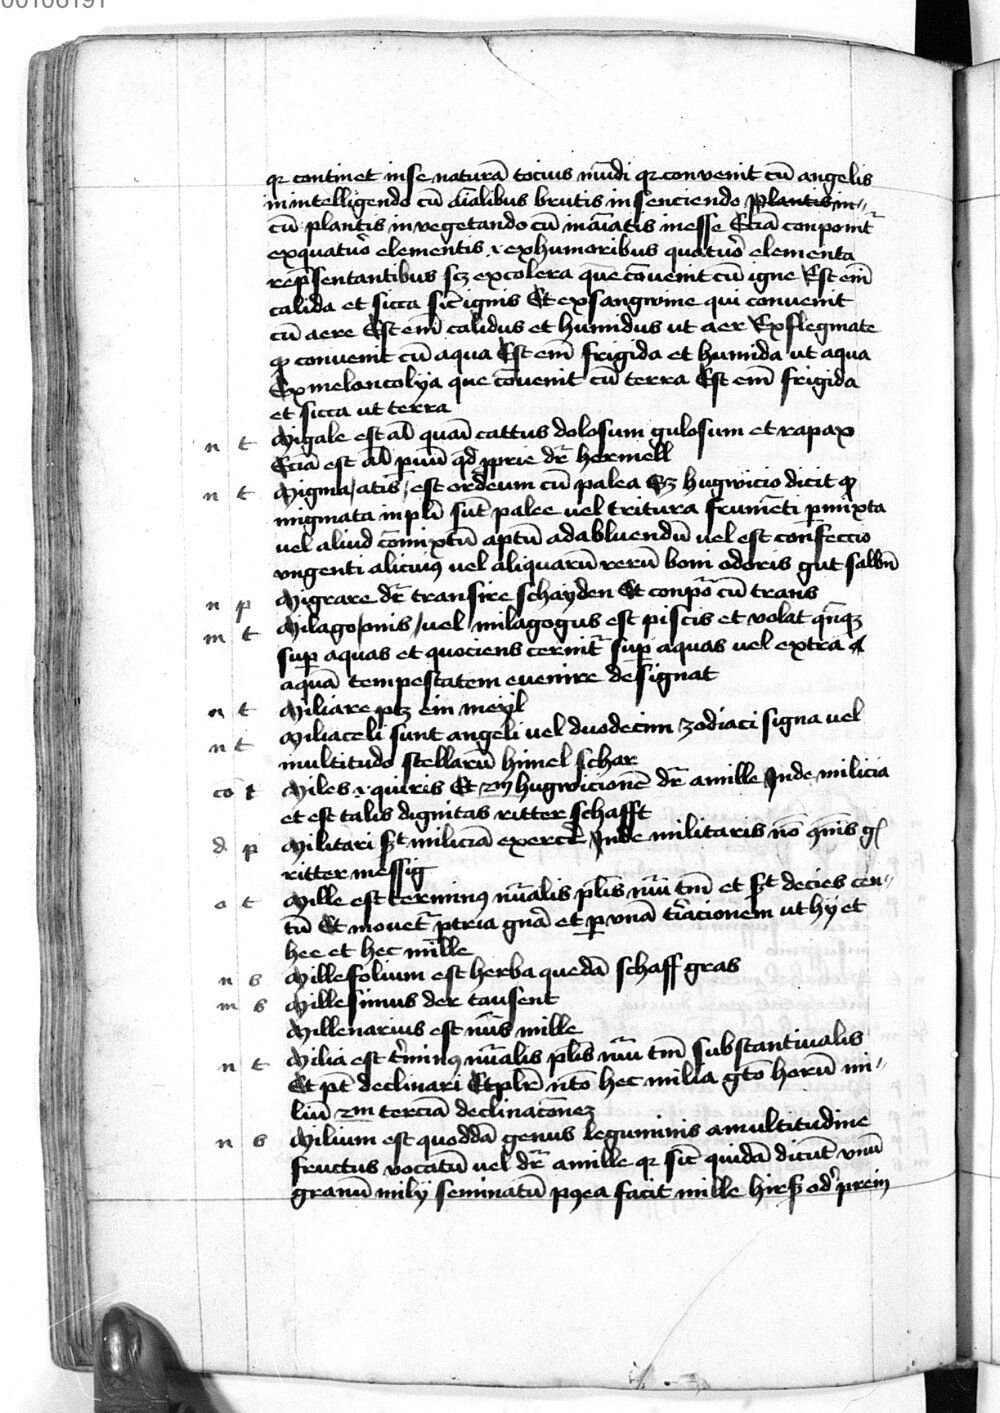 00106191
qr continet in se naturā tocius mūdi qr convenit cū angelis
in intelligendo cū aīalibus brutis in senciendo plantis in
cū plantis in vegetando cū inaīatis in esse Eciā conponit᷑
ex quatuor elementis .i. ex humoribus quatuor elementa
rep̄sentantibus scz ex colera que cōvenit cū igne Est em̄
calida et sicca sic᷑ ignis Et ex sangwine qui convenit
cū aere Est em̄ calidus et humidus ut aer Ex flegmate
qꝫ convenit cū aqua Est em̄ frigida et humida ut aqua
Ex melancolya que cōvenit cū terra Est em̄ frigida
et sicca ut terra
n t Migale est aīal quasi cattus dolosum gulosum et rapax
Eciā est aīal pūū qd ꝓprie dr̄ hermell
n t Migma/atis/est ordeum cū palea Sz hugwicio dicit qꝫ
migmata in plī sūt palee vel tritura frumēti pmixta
vel aliud cōmixtū aptū ad abluendū vel est confeccio
ungenti alicuiꝰ vel aliquarū rerū boni odoris gut salbn̄
n p Migrare dr̄ transire schayden Et conpo᷑ cū trans
m t Milago/onis/vel milagogus est piscis et volat qn̄qꝫ
sup aquas et quociens cernit᷑ sup aquas vel extra
aquā tempestatem evenire designat
n t Miliare ptz ein meyl
n t Miliaceli sunt angeli vel duodecim zodiaci signa vel
multitudo stellarū himel schar
cō t Miles .i. quiris Et 2m hugwicionē dr̄ a mille Inde milicia
et est talis dignitas ritter schafft
d p Militari st miliciā exerc̄e Inde militaris nō qn̄is gͥ
ritter messig
o t Mille est terminꝰ nūalis plīs nūi tm̄ et st decies cen
tū Et movet᷑ ptria gnā et p unā t᷑iacionem ut hy et
hee et hec mille
n s Millefolium est herba quedā schaff gras
m s Millesimus der tausent
Millenarius est nūs mille
n t Milia est t᷑minꝰ nūalis plīs nūi tm̄ substantivalis
Et pt̄ declinari Et plr̄ nt̄o hec milia gt̄o horū mi
liū 2m terciā declinacōnez
n s Milium est quoddā genus leguminis a multitudine
fructus vocatū vel dr̄ a mille qr sic᷑ quidā dicūt unū
granū mily seminatū p9ea facit mille hirs od᷑ prein